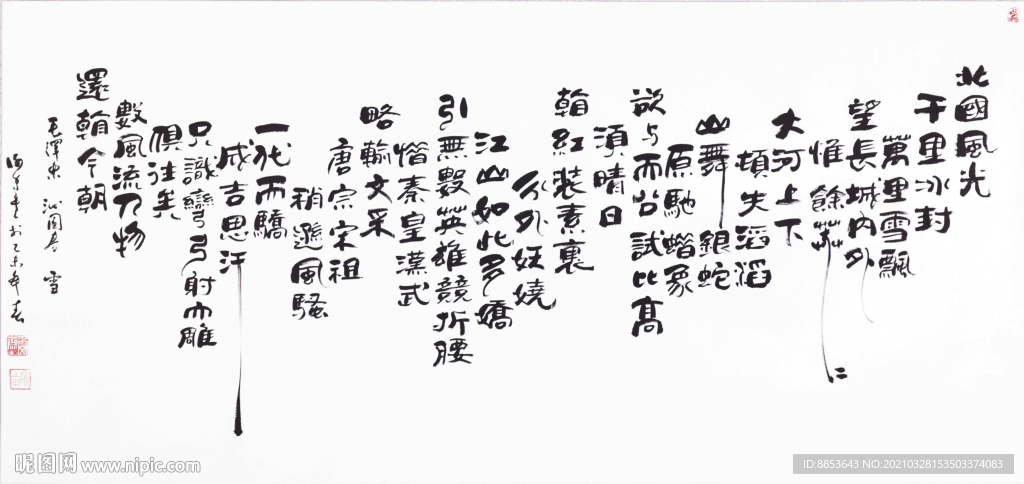 北國風光
千里冰封
萬里雪飄
望長城內外
惟餘莽〻
大河上下
頓失滔滔
山舞銀蛇
原馳蠟象
欲与天公試比高
須晴日
看紅装素裹
分外妖嬈
江山如此多嬌
引無數英雄競折腰
惜秦皇漢武
略輸文采
唐宗宋祖
稍遜風騷
一代天驕
成吉思汗
只識彎弓射大雕
俱往矣
數風流人物
還看今朝
毛澤東 沁園春 雪
书乙未年春
昵图网 www.nipic.com
ID:8853643 NO:20210328153503374083